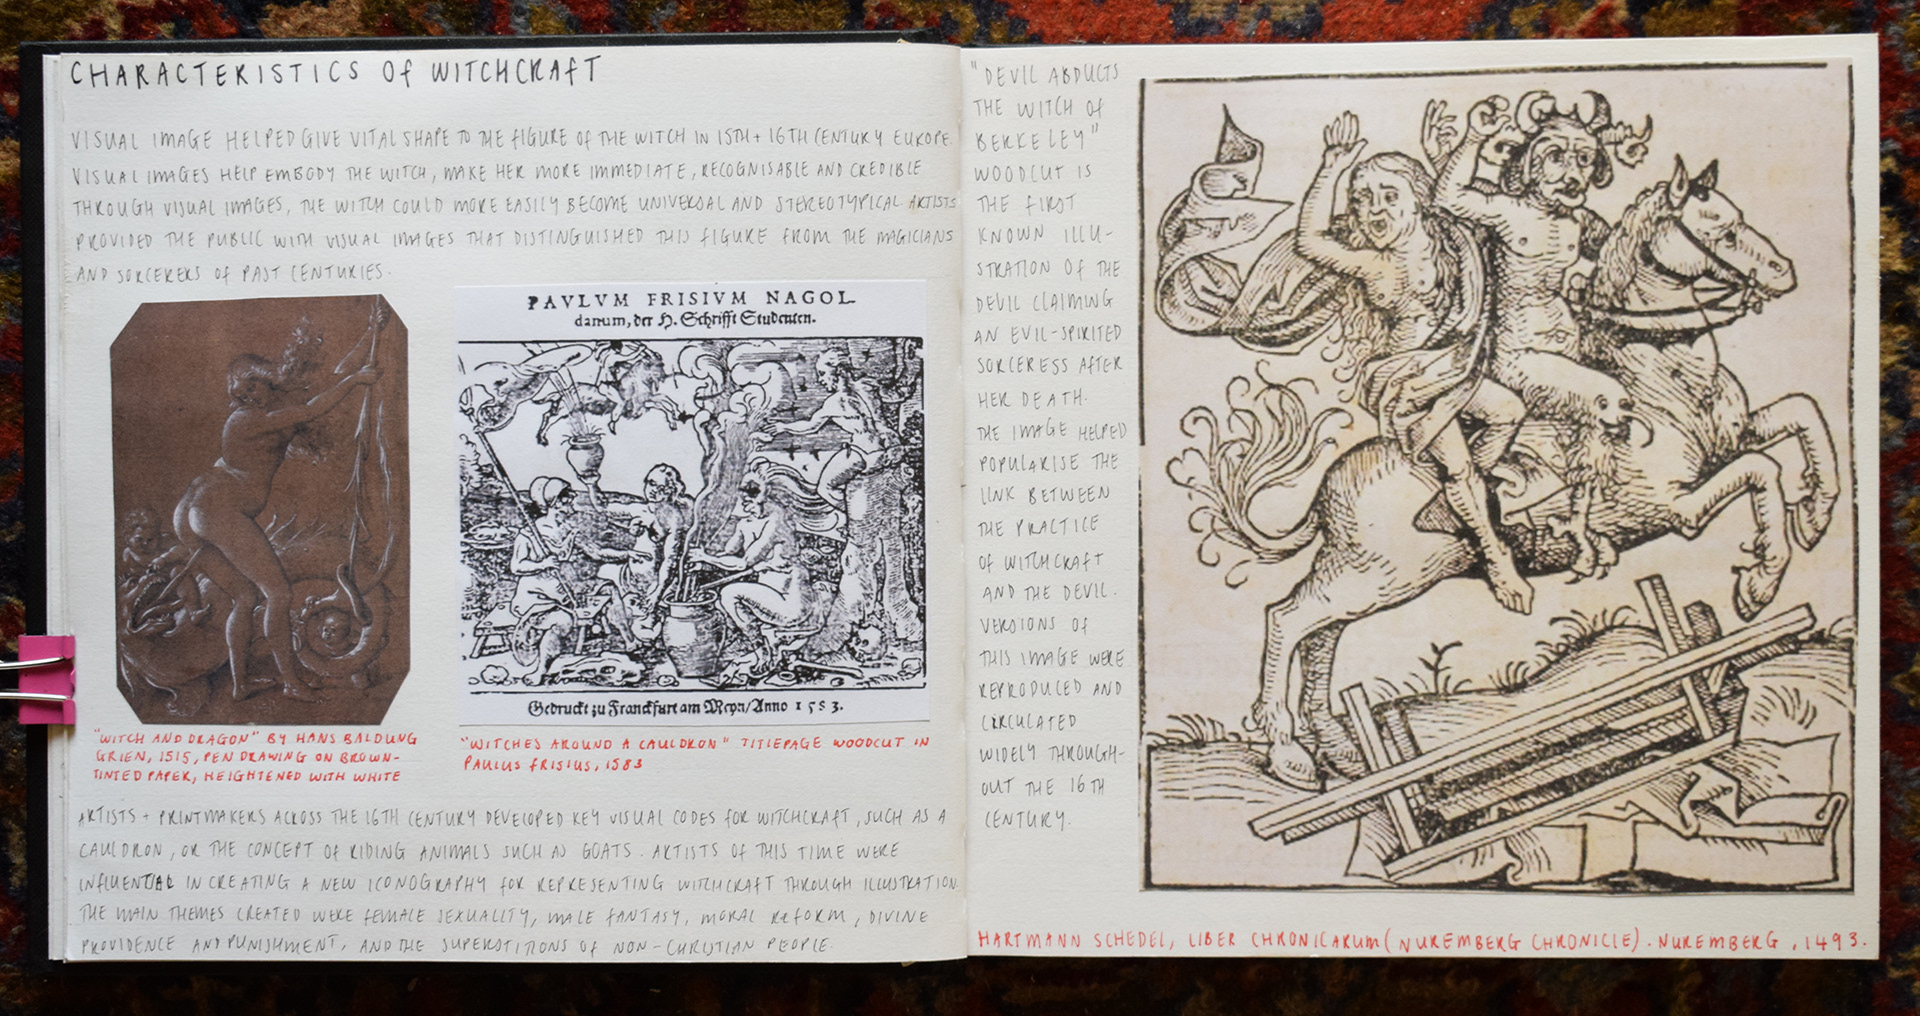 CHARACTERISTICS OF WITCHCRAFT
VISUAL IMAGE HELPED GIVE VITAL SHAPE TO THE FIGURE OF THE WITCH IN 15TH + 16TH CENTURY EUROPE.
VISUAL IMAGES HELP EMBODY THE WITCH, MAKE HER MORE IMMEDIATE, RECOGNISABLE AND CREDIBLE
THROUGH VISUAL IMAGES, THE WITCH COULD MORE EASILY BECOME UNIVERSAL AND STEREOTYPICAL ARTISTS
PROVIDED THE PUBLIC WITH VISUAL IMAGES THAT DISTINGUISHED THIS FIGURE FROM THE MAGICIANS
AND SORCERERS OF PAST CENTURIES.
PAVLVM FRISIVM NAGOL
danum, der H. Schrifft Studenten.
Gedruckt zu Franckfurt am Meyn/Anno 1583.
"WITCH AND DRAGON" BY HANS BALDUNG
GRIEN, 1515, PEN DRAWING ON BROWN-
TINTED PAPER, HEIGHTENED WITH WHITE
"WITCHES AROUND A CAULDRON" TITLEPAGE WOODCUT IN
PAULUS FRISIUS, 1583
ARTISTS + PRINTMAKERS ACROSS THE 16TH CENTURY DEVELOPED KEY VISUAL CODES FOR WITCHCRAFT, SUCH AS A
CAULDRON, OR THE CONCEPT OF RIDING ANIMALS SUCH AS GOATS. ARTISTS OF THIS TIME WERE
INFLUENTIAL IN CREATING A NEW ICONOGRAPHY FOR REPRESENTING WITCHCRAFT THROUGH ILLUSTRATION.
THE MAIN THEMES CREATED WERE FEMALE SEXUALITY, MALE FANTASY, MORAL REFORM, DIVINE
PROVIDENCE AND PUNISHMENT, AND THE SUPERSTITIONS OF NON-CHRISTIAN PEOPLE.
"DEVIL ABDUCTS
THE WITCH OF
BERKELEY"
WOODCUT IS
THE FIRST
KNOWN ILLU-
STRATION OF THE
DEVIL CLAIMING
AN EVIL-SPIRITED
SORCERESS AFTER
HER DEATH.
THE IMAGE HELPED
POPULARISE THE
LINK BETWEEN
THE PRACTICE
OF WITCHCRAFT
AND THE DEVIL.
VERSIONS OF
THIS IMAGE WERE
REPRODUCED AND
CIRCULATED
WIDELY THROUGH-
OUT THE 16TH
CENTURY.
HARTMANN SCHEDEL, LIBER CHRONICARUM (NUREMBERG CHRONICLE). NUREMBERG, 1493.